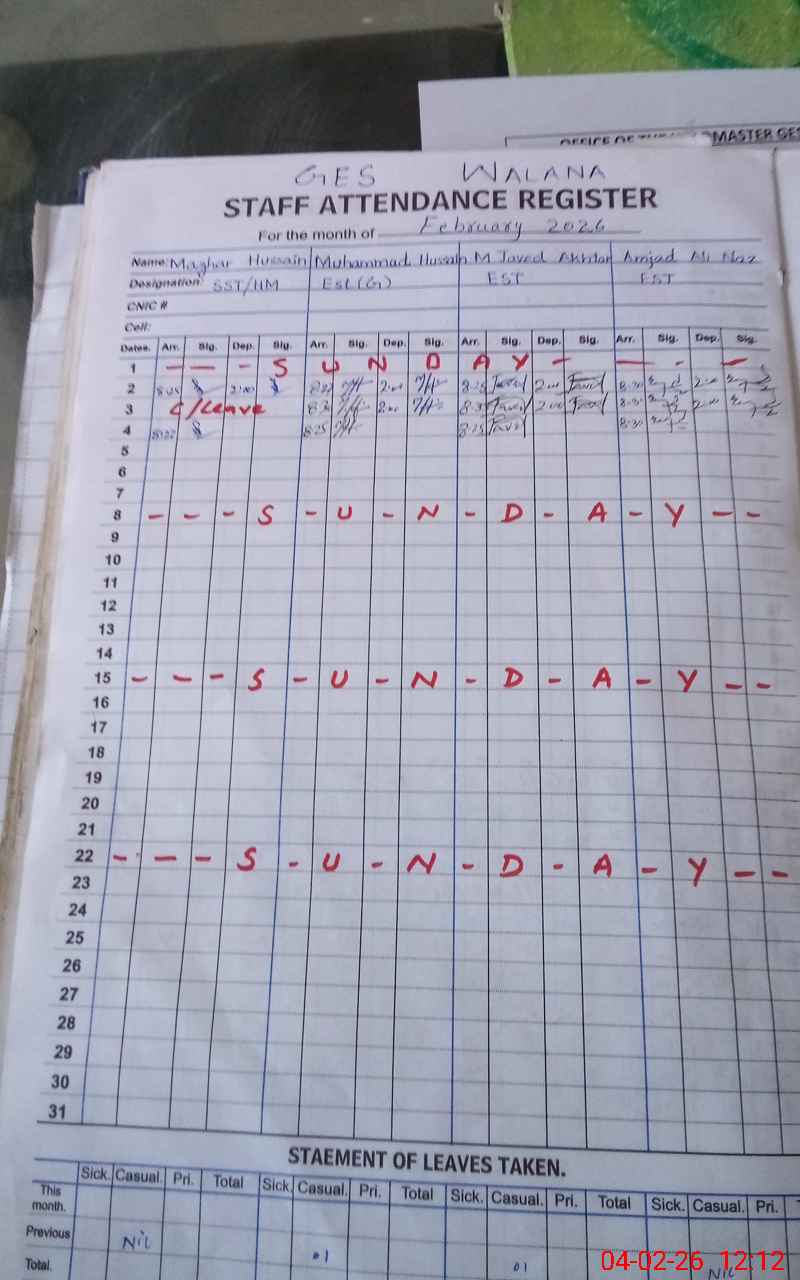 MASTER GES
GES WALANA
STAFF ATTENDANCE REGISTER
For the month of February 2026
Name: Mazhar Hussain Muhammad Hussain M Javed Akhtar Amjad Ali Naz
Designation: SST/HM Est (G) EST EST
CNIC #
Cell:
Dates. Arr. Sig. Dep. Sig. Arr. Sig. Dep. Sig. Arr. Sig. Dep. Sig. Arr. Sig. Dep. Sig.
1 - - - S U N D A Y - - - -
2 8:25 2:00 2:00 8:25 Javed 2:00 Javed 8:30 2:00
3 C/Leave 8:30 2:00 8:30 Javed 2:00 Javed 8:30 2:00
4 8:25 8:25 Javed 8:30
5
6
7
8 - - - S - U - N - D - A - Y - -
9
10
11
12
13
14
15 - - - S - U - N - D - A - Y - -
16
17
18
19
20
21
22 - - - S - U - N - D - A - Y - -
23
24
25
26
27
28
29
30
31
STAEMENT OF LEAVES TAKEN.
Sick. Casual. Pri. Total Sick. Casual. Pri. Total Sick. Casual. Pri. Total Sick. Casual. Pri.
This month.
Previous Nil 01 01 Nil
Total.
04-02-26 12:12